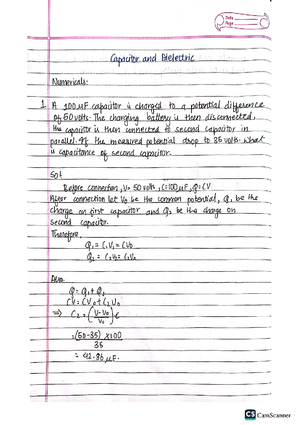 Date
Page
Capacitor and Dielectric
Numericals:
1. A 100μF capacitor is charged to a potential difference
of 50 volts. The charging battery is then disconnected,
the capacitor is then connected to second capacitor in
parallel. If the measured potential drop to 35 volts. What
is capacitance of second capacitor.
Sol:
Before connection, V= 50 volts, C=100μF, Q=CV
After connection let V₀ be the common potential, Q₁ be the
charge on first capacitor and Q₂ be the charge on
second capacitor.
Therefore,
Q₁ = C₁V₁ = CV₀
Q₂ = C₂V₂= C₂V₀
Also,
Q = Q₁ + Q₂
CV = CV₀ + C₂V₀
⇒ C₂ = (V-V₀/V₀) C
= (50-35) x100
35
= 42.86 μF.
CS CamScanner